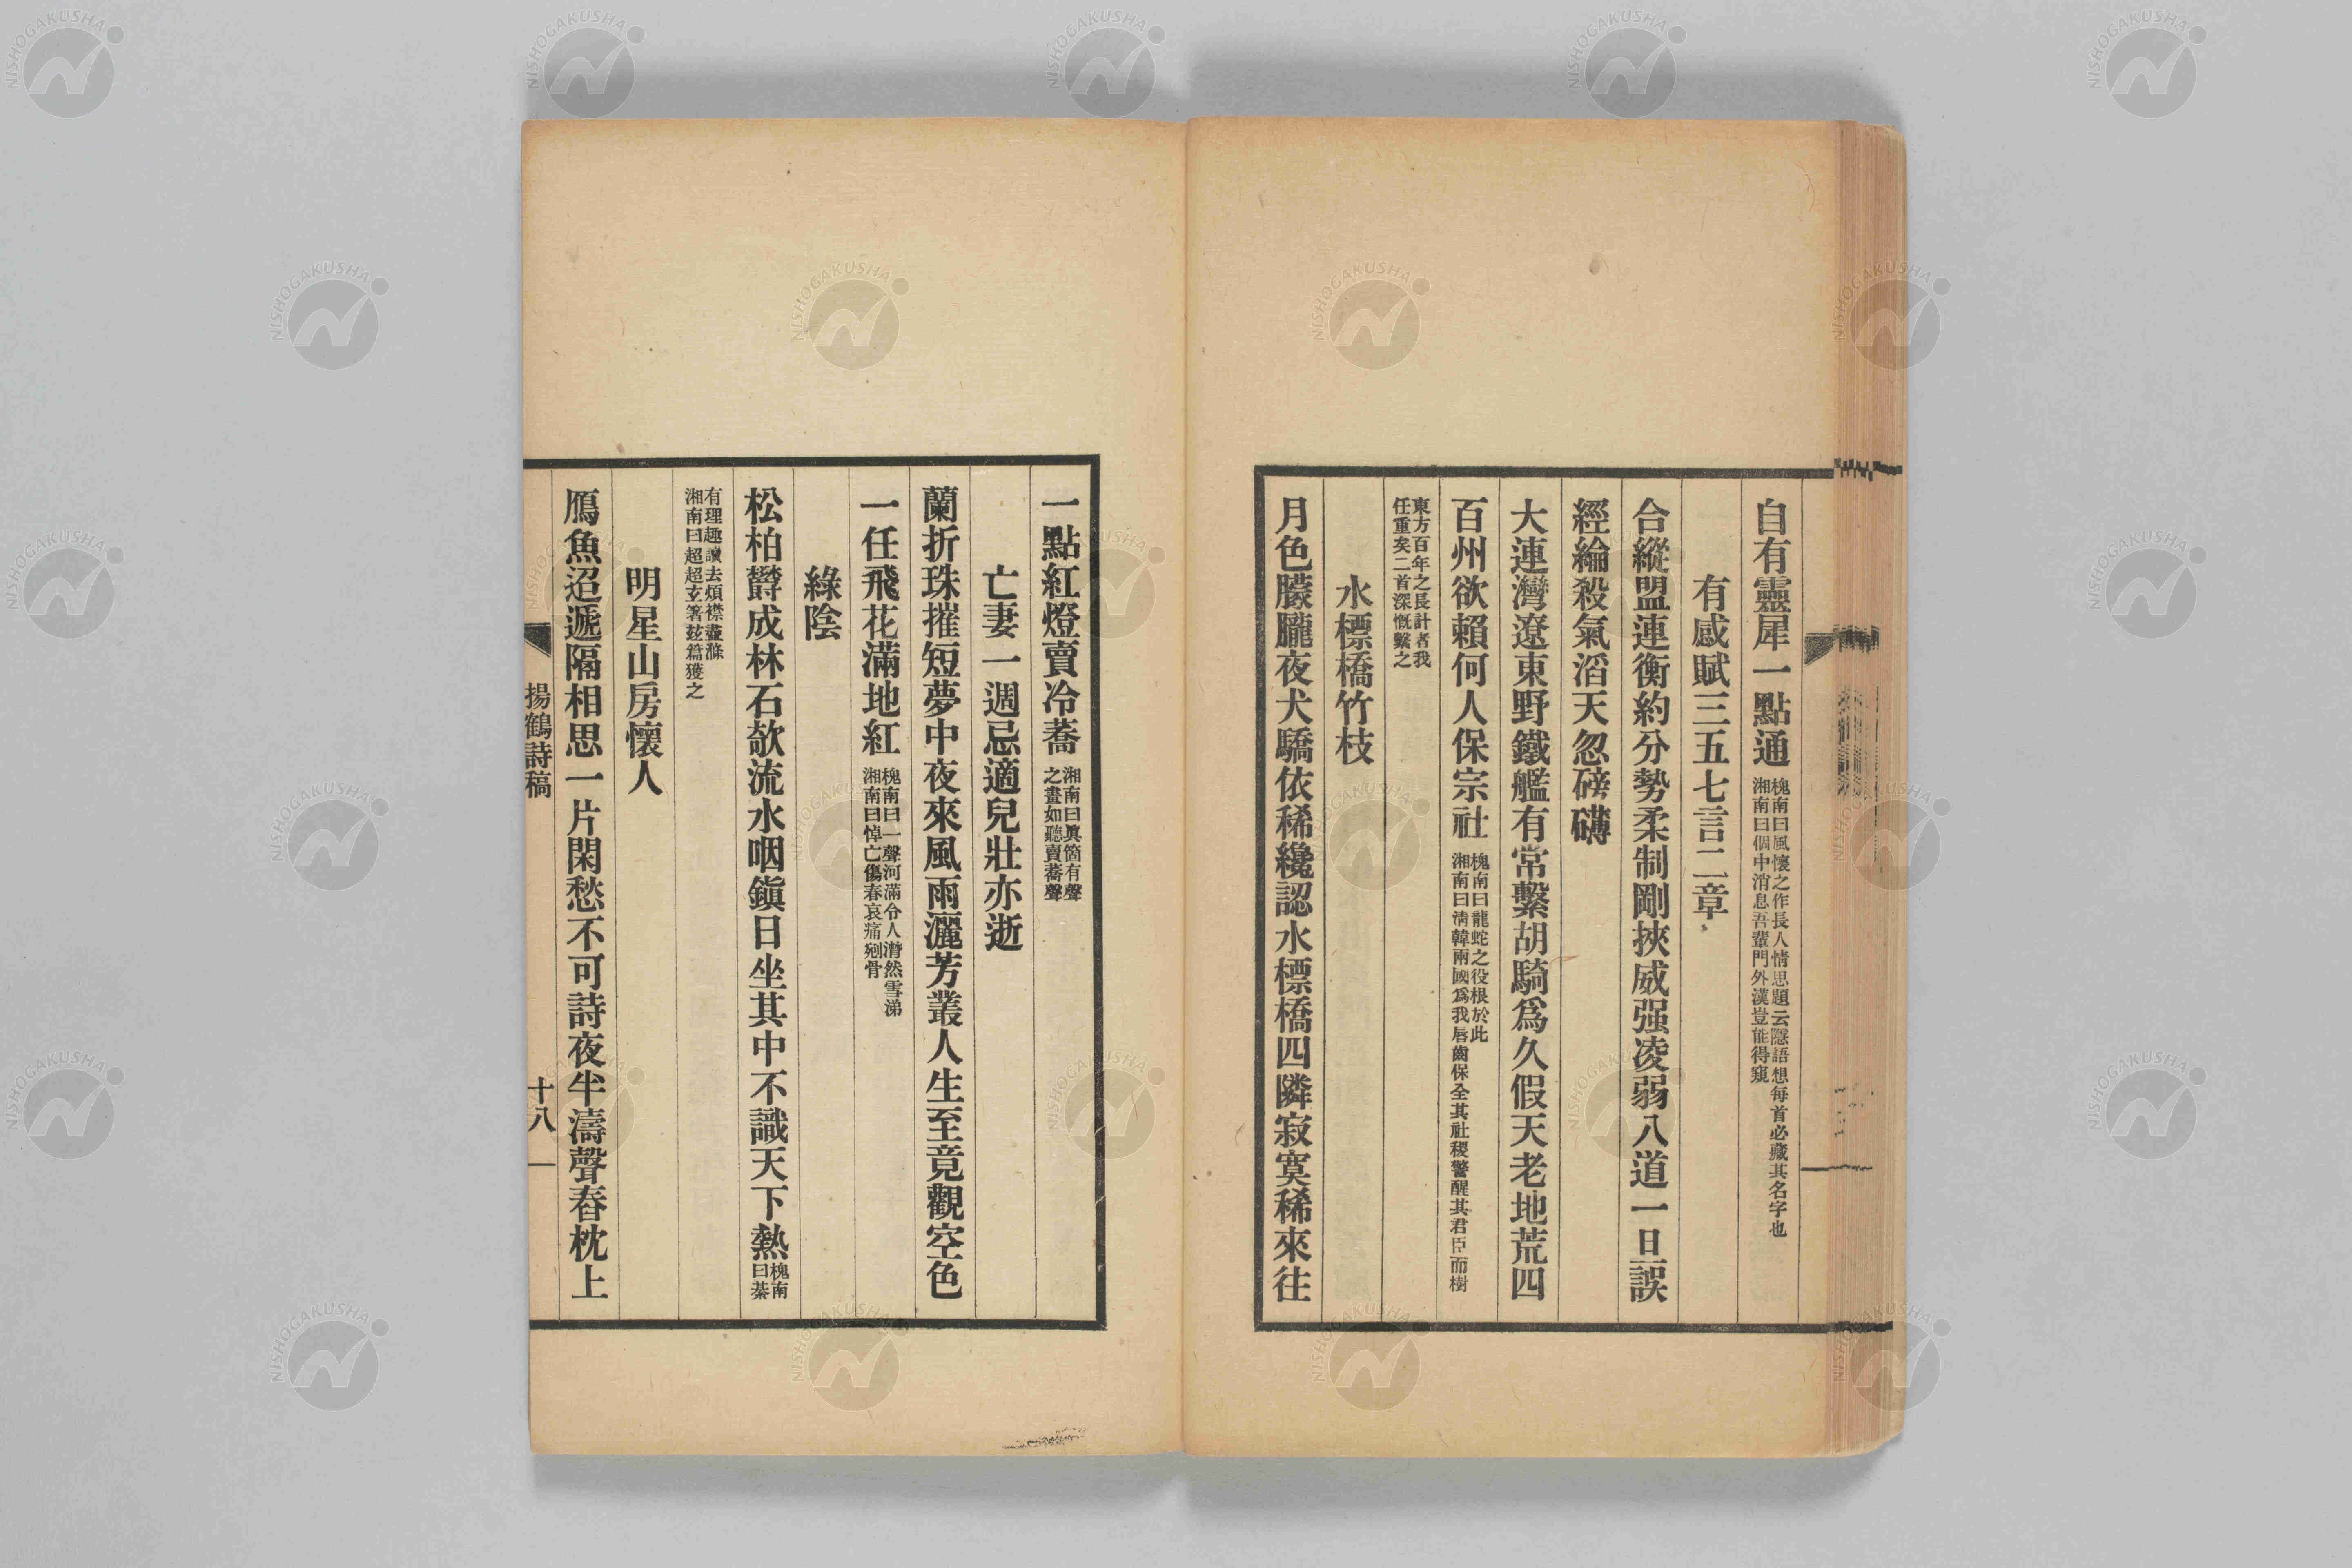 自有靈犀一點通
槐南曰風懷之作長人情思題云隱語想每首必藏其名字也
湘南曰個中消息吾輩門外漢豈能得窺
有感賦三五七言二章
合縱盟連衡約分勢柔制剛挾威强凌弱八道一日誤
經綸殺氣滔天忽磅礴
大連灣遼東野鐵艦有常繫胡騎爲久假天老地荒四
百州欲賴何人保宗社
槐南曰龍蛇之役根於此
湘南曰淸韓兩國爲我唇齒保全其社稷警醒其君臣而樹
東方百年之長計者我
任重矣二首深慨繫之
水標橋竹枝
月色朦朧夜犬驕依稀纔認水標橋四隣寂寞稀來往
一點紅燈賣冷蕎
湘南曰眞箇有聲
之畫如聽賣蕎聲
亡妻一週忌適兒壯亦逝
蘭折珠摧短夢中夜來風雨灑芳叢人生至竟觀空色
一任飛花滿地紅
槐南曰一聲河滿令人潸然雪涕
湘南曰悼亡傷春哀痛剜骨
綠陰
松柏欝成林石欹流水咽鎭日坐其中不識天下熱
槐南
曰蓁
有理趣讀去煩襟盡滌
湘南曰超超玄箸玆篇獲之
明星山房懷人
鴈魚迢遞隔相思一片閑愁不可詩夜半濤聲舂枕上
揚鶴詩稿
十八
NISHOGAKUSHA